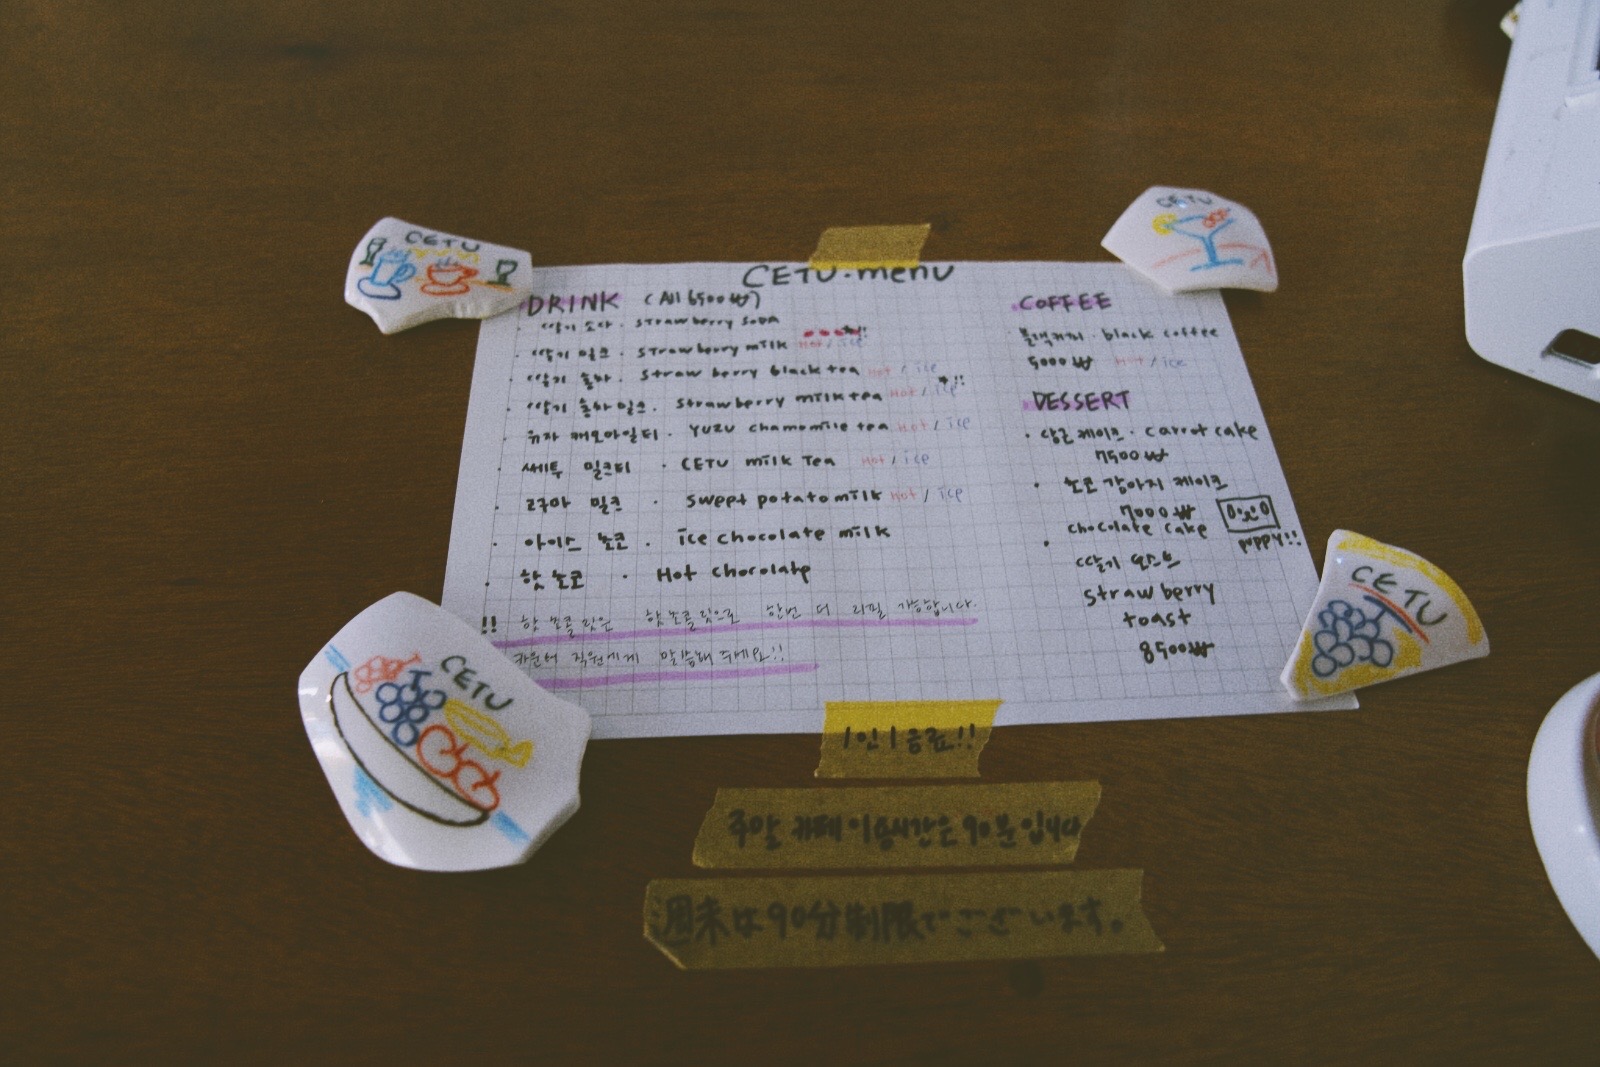 CETU
CETU
CETU·menu
DRINK (All 6500₩)
· 딸기 소다 · strawberry soda
· 딸기 밀크 · strawberry milk Hot / ice
· 딸기 홍차 · strawberry black tea Hot / ice
· 딸기 홍차 밀크 · strawberry milk tea Hot / ice
· 유자 캐모마일티 · Yuzu chamomile tea Hot / ice
· 쎄투 밀크티 · CETU milk Tea Hot / ice
· 고구마 밀크 · sweet potato milk Hot / ice
· 아이스 초코 · ice chocolate milk
· 핫 초코 · Hot chocolate
!! 핫 초콜릿은 핫 초콜릿으로 한번 더 리필 가능합니다.
카운터 직원에게 말씀해 주세요!!
COFFEE
블랙커피 · black coffee
5000₩ Hot / ice
DESSERT
· 당근 케이크 · carrot cake
7500₩
· 초코 강아지 케이크
7000₩
chocolate cake
puppy!!
· 딸기 토스트
strawberry
toast
8500₩
CETU
CETU
1인 1음료!!
주말 카페 이용시간은 90분 입니다
週末は90分制限でございます。